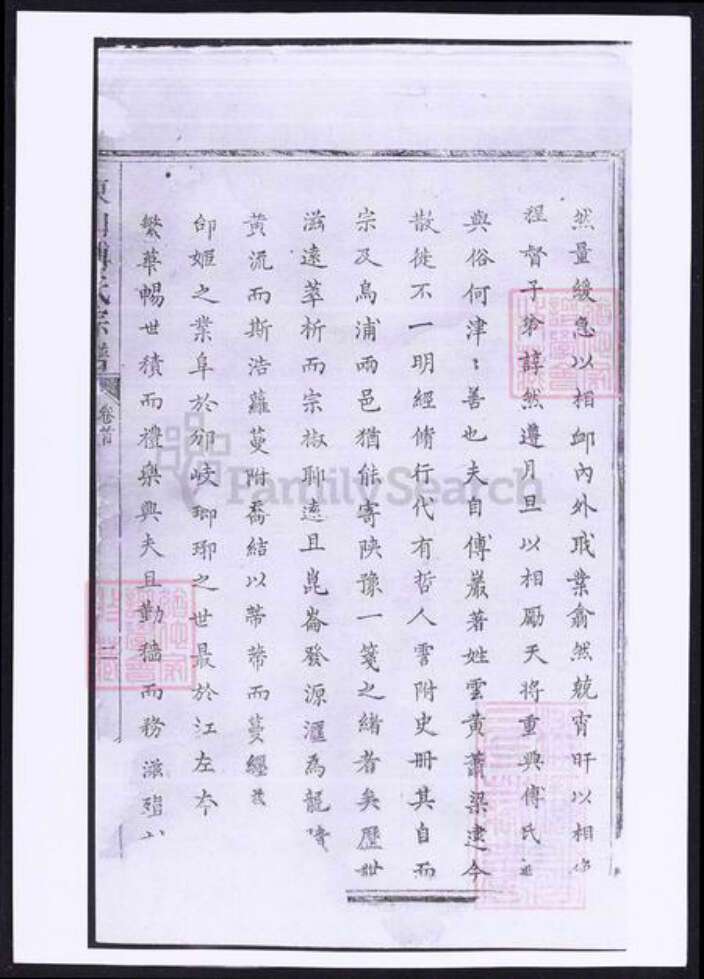 然量緩急以相卹內外戝業翕然兢宵旰以相
程督子弟諄然遵月旦以相勵天將重興傅氏
與俗何津〻善也夫自傅巖著姓雲黃蕭梁逮今
散徙不一明經脩行代有哲人雲附史冊其自而
宗及烏浦兩邑猶能寄陝豫一箋之緒者矣歷世
滋遠萃析而宗椒聊遠且崑崙發源滙為龍
黃流而斯浩蘿蔓附喬結以蒂蒂而蔓纒
邰姬之業阜於邠岐瑯琊之世最於江左本
繁華暢世積而禮樂興夫且勤穡而務滋
氏宗譜
卷首
FamilySearch